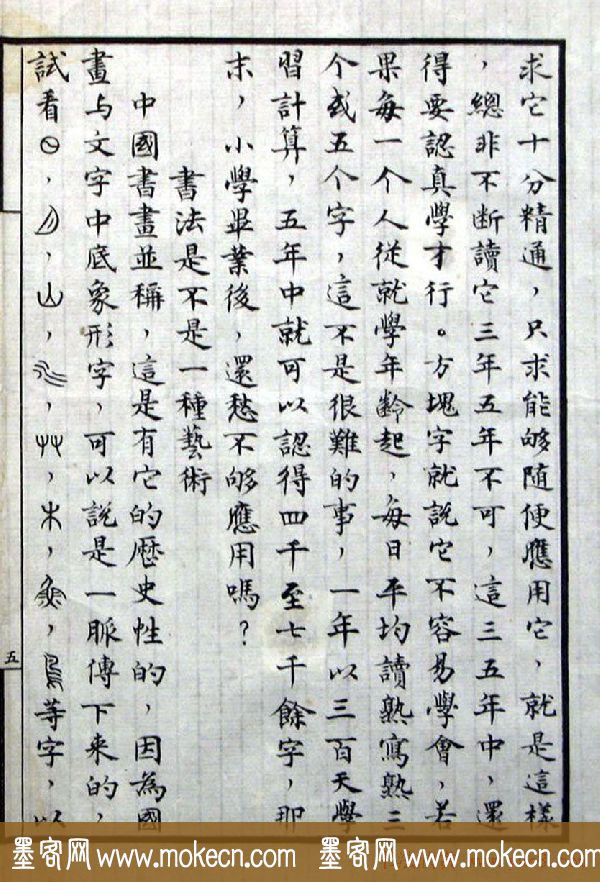 求它十分精通，只求能够随便應用它，就是這樣
，總非不断讀它三年五年不可，這三五年中，還
得要認真學才行。方塊字就説它不容易學會，若
果每一个人從就學年齡起，每日平均讀熟寫熟三
个或五个字，這不是很難的事，一年以三百天學
習計算，五年中就可以認得四千至七千餘字，那
末，小學畢業後，還愁不够應用嗎？
書法是不是一種藝術
中國書畫並稱，這是有它的歷史性的，因為國
畫与文字中底象形字，可以說是一脈傳下来的，
試看，，山，，艸，木，，等字，以
五
墨客网 www.mokecn.com 墨客网 www.mokecn.com